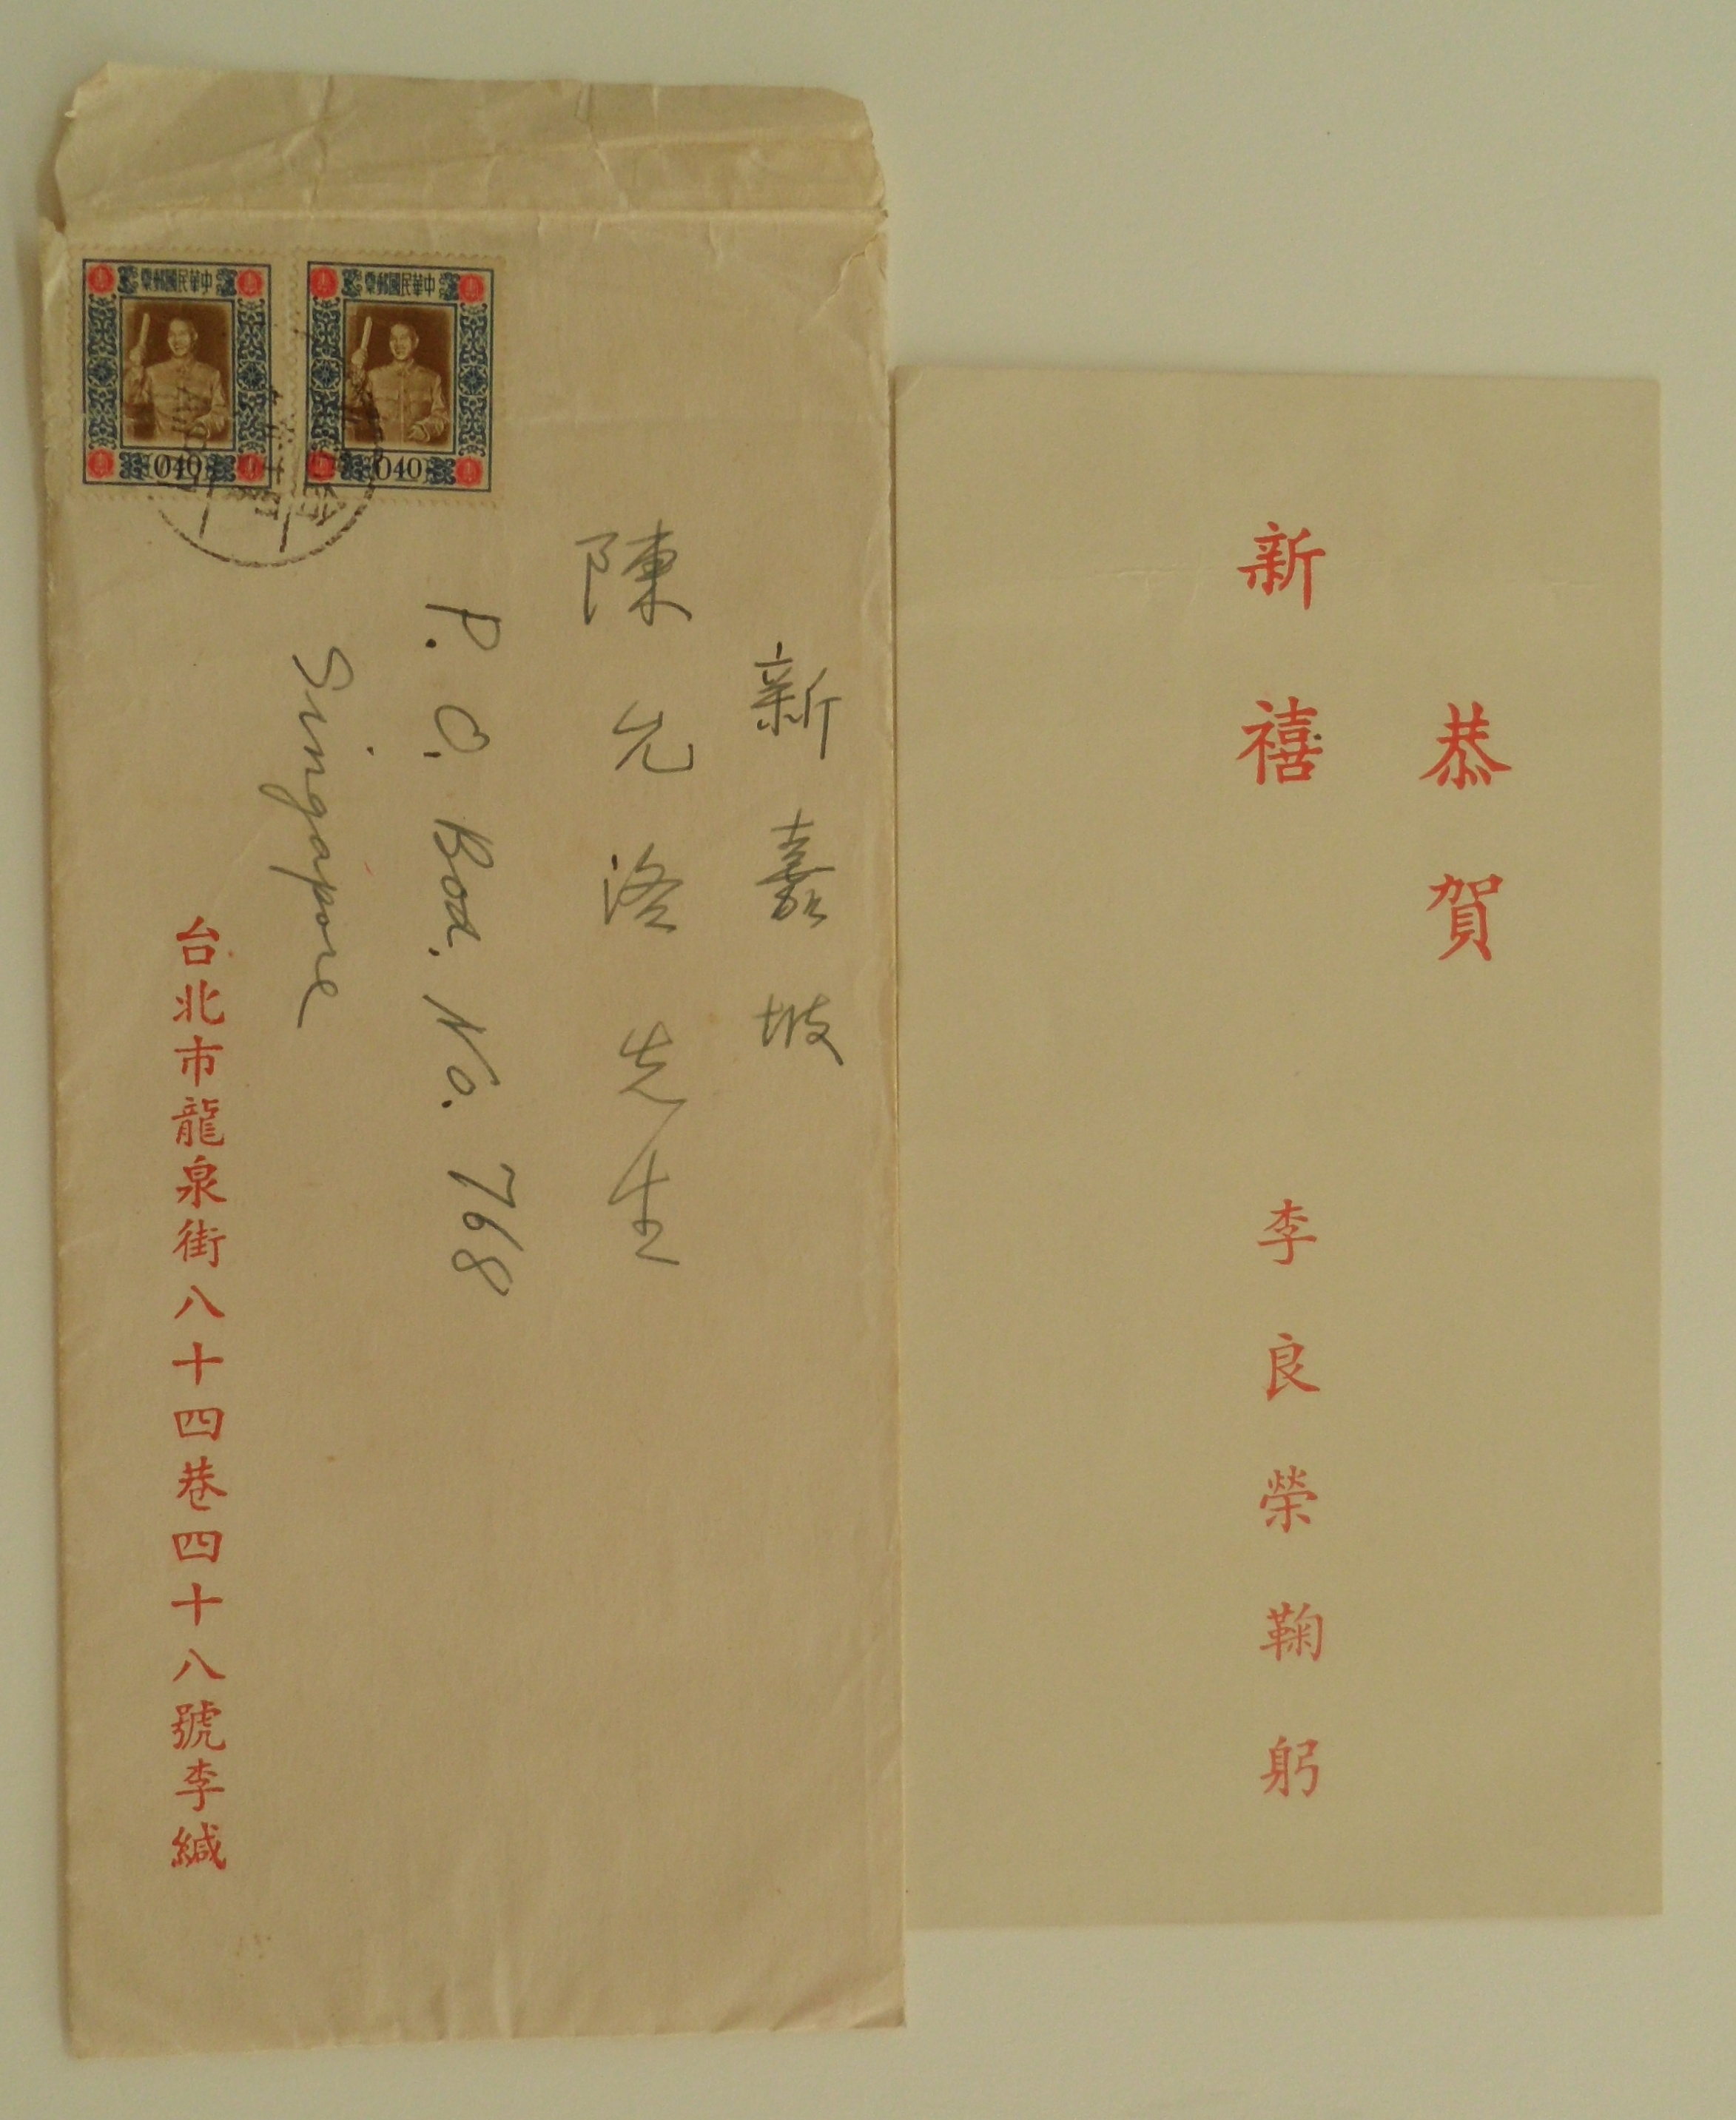 中華民國郵票
040
中華民國郵票
040
新嘉坡
陳允洛先生
P. O. Box. No. 768
Singapore
台北市龍泉街八十四巷四十八號李緘
恭賀
新禧
李良榮鞠躬